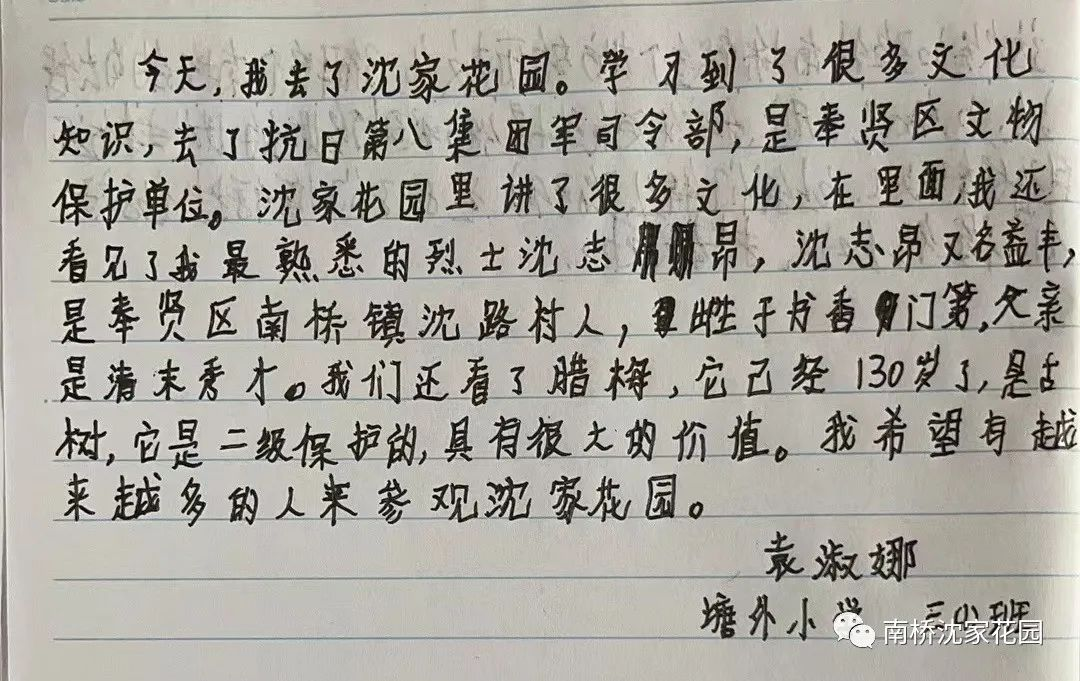 今天,我去了沈家花园。学习到了很多文化
知识,去了抗日第八集团军司令部,是奉贤区文物
保护单位。沈家花园里讲了很多文化,在里面,我还
看见了我最熟悉的烈士沈志昂,沈志昂又名益丰,
是奉贤区南桥镇沈路村人,出生于书香门第,父亲
是清末秀才。我们还看了腊梅,它已经130岁了,是古
树,它是二级保护的,具有很大的价值。我希望有越
来越多的人来参观沈家花园。
袁淑娜
塘外小学 三 班
南桥沈家花园